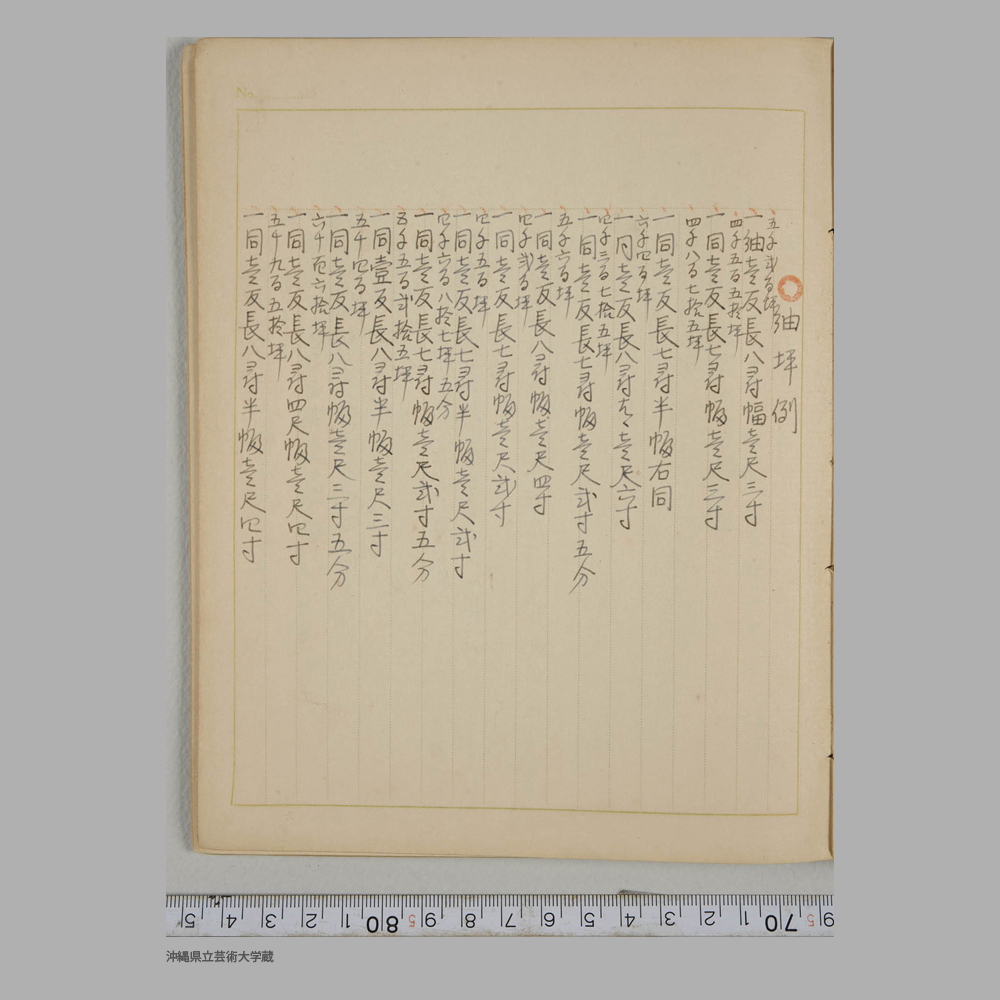 紬坪例
五千弐百坪
一紬壱反長八尋幅壱尺三寸
四千五百五拾坪
一同壱反長七尋幅壱尺三寸
四千八百七拾五坪
一同壱反長七尋半幅右同
六千四百坪
一同壱反長八尋壱尺六寸
四千三百七拾五坪
一同壱反長七尋幅壱尺弐寸五分
五千六百坪
一同壱反長八尋幅壱尺四寸
四千弐百坪
一同壱反長七尋幅壱尺弐寸
四千五百坪
一同壱反長七尋半幅壱尺弐寸
四千六百八拾七坪五分
一同壱反長七尋幅壱尺弐寸五分
五千五百弐拾五坪
一同壹反長八尋半幅壱尺三寸
五千四百坪
一同壱反長八尋幅壱尺三寸五分
六千四百六拾坪
一同壱反長八尋四尺幅壱尺四寸
五千九百五拾坪
一同壱反長八尋半幅壱尺四寸
No.
5 4 3 2 1 80 5 9 8 7 6 5 4 3 2 1 70 5 9
沖縄県立芸術大学蔵